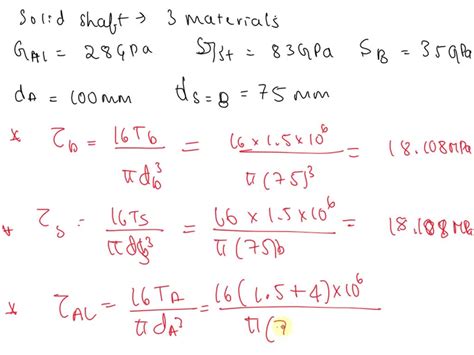 Solid shaft → 3 materials
G_AL = 28GPa G_st = 83GPa S_B = 35GPa
d_A = 100mm d_S=B = 75 mm
* τ_b = 16T_b / πd_b³ = 16 × 1.5 × 10⁶ / π(75)³ = 18.108MPa
* τ_s = 16T_s / πd_s³ = 16 × 1.5 × 10⁶ / π(75)³ = 18.108MPa
* τ_AL = 16T_A / πd_A³ = 16(1.5+4)×10⁶ / π(